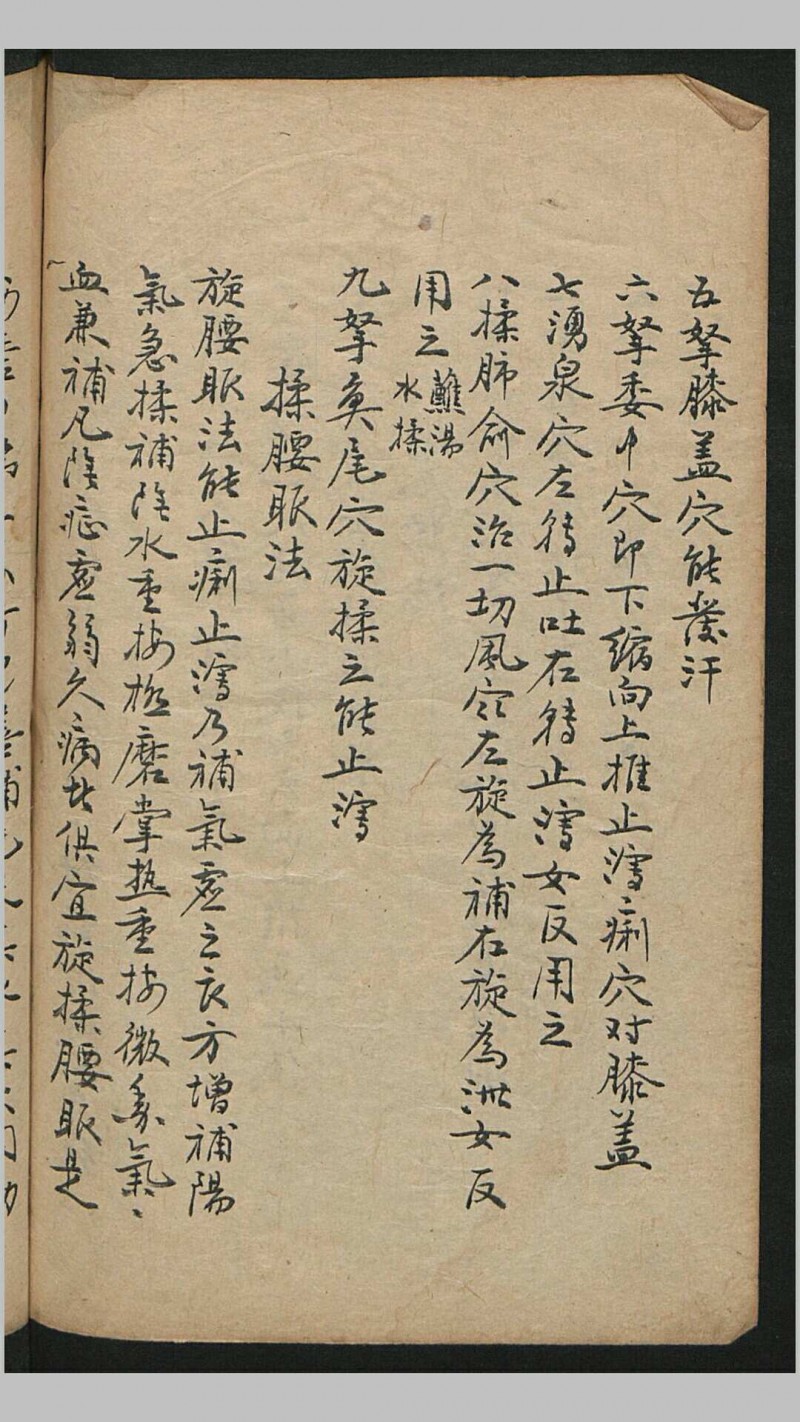 五拏膝蓋穴能發汗
六拏委中穴即下縮向上推止瀉痢穴对膝蓋
七湧泉穴左轉止吐右轉止瀉女反用之
八揉肺俞穴治一切風 左旋為補右旋為泄女反
用之 蘸湯
水揉
九拏奐尾穴旋揉之能止瀉
揉腰眼法
旋腰眼法能止痢止瀉乃補氣虛之良方增補陽
氣急揉補陰水重按極磨掌热重按微 氣〻
血兼補凡陰症虛弱久病此俱宜旋揉腰眼是